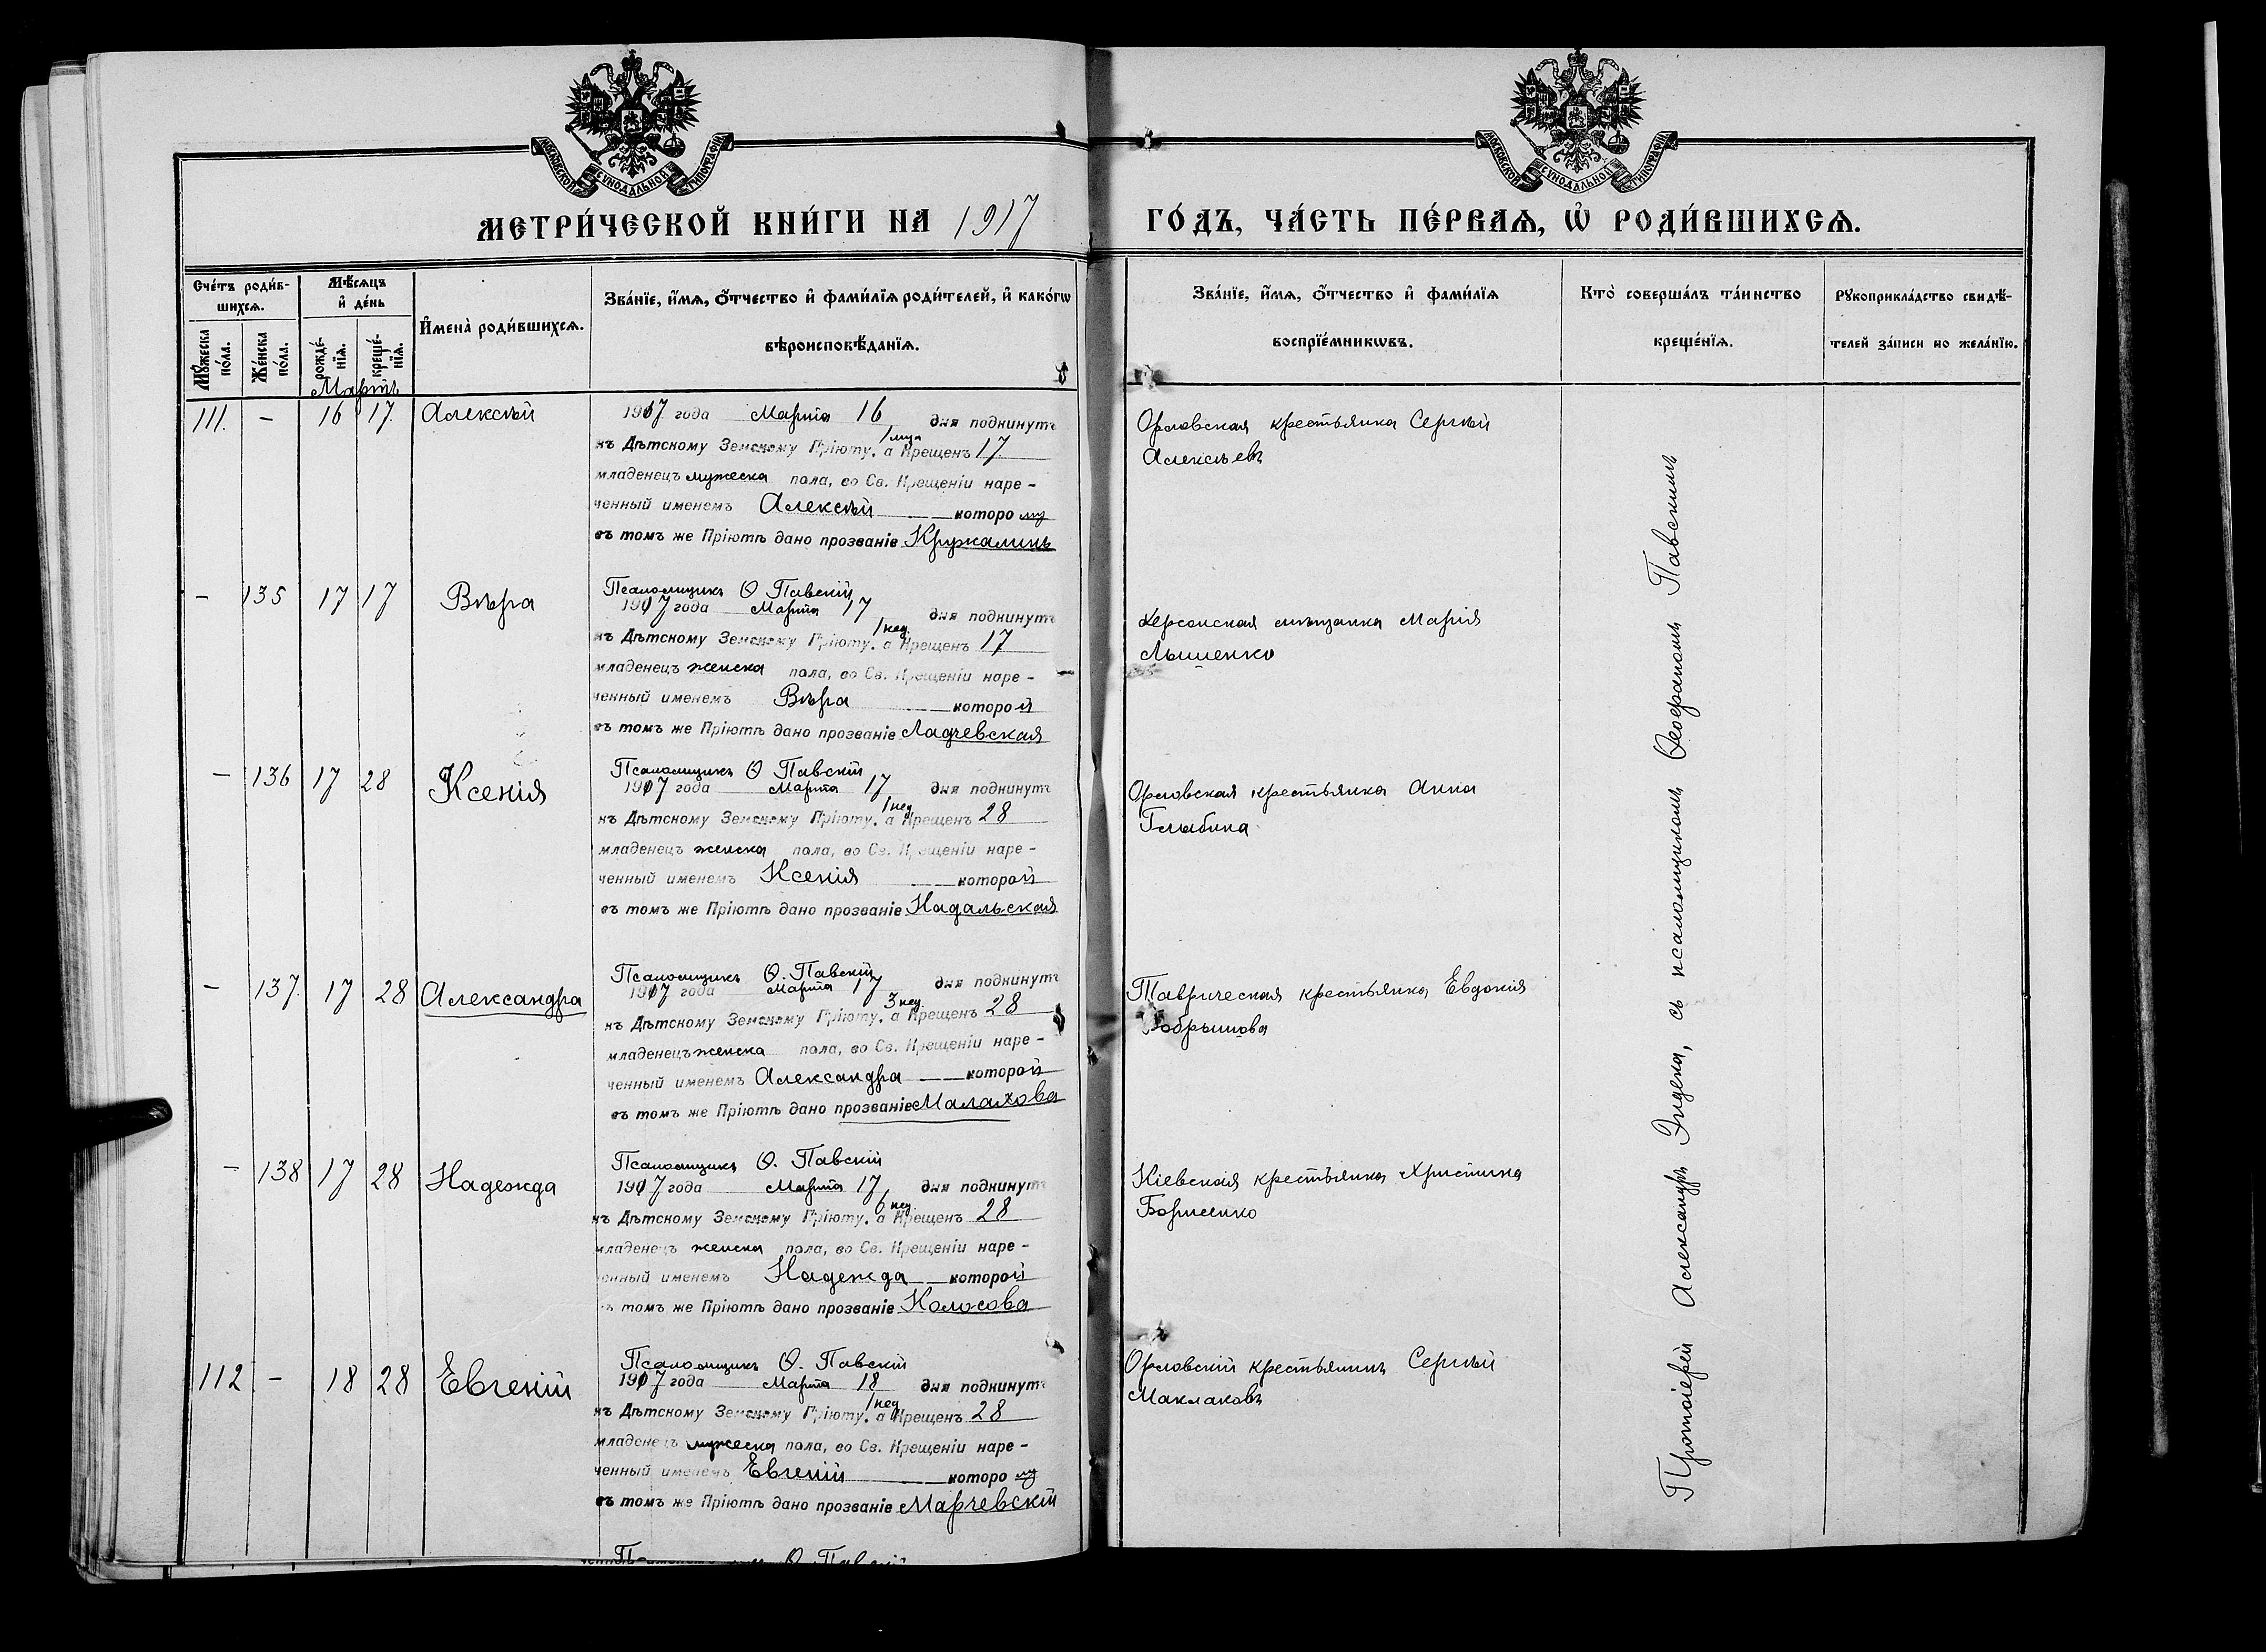 МОСКОВСКОЙ СУНОДАЛЬНОЙ ТИПОГРАФІИ
МОСКОВСКОЙ СУНОДАЛЬНОЙ ТИПОГРАФІИ
МЕТРИ́ЧЕСКОЙ КНИ́ГИ НА 1917
ГО́ДЪ, ЧА́СТЬ ПЕ́РВАѦ, Ѡ҆ РОДИ́ВШИХСѦ.
Сче́тъ роди́в-
шихсѧ.
Мꙋ́жеска
по́ла.
Же́нска
по́ла.
Мѣ́сѧцъ
и҆ де́нь
рожде́-
нїѧ.
креще́-
нїѧ.
Мартъ
И҆мена̀ роди́вшихсѧ.
Зва́нїе, и҆́мѧ, ѻ҆́тчество и҆ фами́лїѧ роди́телей, и҆ како́гѡ
вѣроисповѣ́данїѧ.
Зва́нїе, и҆́мѧ, ѻ҆́тчество и҆ фами́лїѧ
воспрїе́мникѡвъ.
Кто̀ соверша́лъ та́инство
креще́нїѧ.
Рꙋкоприкла́дство свидѣ́-
телей за́писи по жела́нїю.
111. - 16 17. Алексѣй
1917 года Марта 16 дня подкинутъ
къ Дѣтскому Земскому Пріюту, а Крещенъ 17
младенецъ мужеска пола, во Св. Крещеніи наре-
ченный именемъ Алексѣй которому
въ томъ же Пріютѣ дано прозваніе Кружалинъ
Орловская крестьянка Сергѣй
Алексѣевъ
- 135 17 17 Вѣра
Псаломщикъ Ѳ Павскій
1917 года Марта 17 дня подкинутъ
1 нед.
къ Дѣтскому Земскому Пріюту, а Крещенъ 17
младенецъ женска пола, во Св. Крещеніи наре-
ченный именемъ Вѣра которой
въ томъ же Пріютѣ дано прозваніе Ладчевская
Херсонская мѣщанка Марія
- 136 17 28 Ксенія
Псаломщикъ Ѳ Павскій
1917 года Марта 17 дня подкинутъ
1 нед
къ Дѣтскому Земскому Пріюту, а Крещенъ 28
младенецъ женска пола, во Св. Крещеніи наре-
ченный именемъ Ксенія которой
въ томъ же Пріютѣ дано прозваніе Надальская
Орловская крестьянка Анна
Глыбина
- 137. 17 28 Александра
Псаломщикъ Ѳ. Павскій
1917 года Марта 17 дня подкинутъ
3 нед.
къ Дѣтскому Земскому Пріюту, а Крещенъ 28
младенецъ женска пола, во Св. Крещеніи наре-
ченный именемъ Александра которой
въ томъ же Пріютѣ дано прозваніе Малахова
Таврическая крестьянка Евдокія
- 138 17 28 Надежда
Псаломщикъ Ѳ. Павскій
1917 года Марта 17 дня подкинутъ
6 нед
къ Дѣтскому Земскому Пріюту, а Крещенъ 28
младенецъ женска пола, во Св. Крещеніи наре-
ченный именемъ Надежда которой
въ томъ же Пріютѣ дано прозваніе Колосова
Кіевская крестьянка Христина
Борисенко
112 - 18 28 Евгеній
Псаломщикъ Ѳ. Павскій
1917 года Марта 18 дня подкинутъ
1 нед
къ Дѣтскому Земскому Пріюту, а Крещенъ 28
младенецъ мужеска пола, во Св. Крещеніи наре-
ченный именемъ Евгеній которому
въ томъ же Пріютѣ дано прозваніе Марчевскій
Орловскій крестьянинъ Сергѣй
Маклаковъ
Протоіерей Александръ Эндека, съ псаломщикомъ Ѳеофаномъ Павскимъ